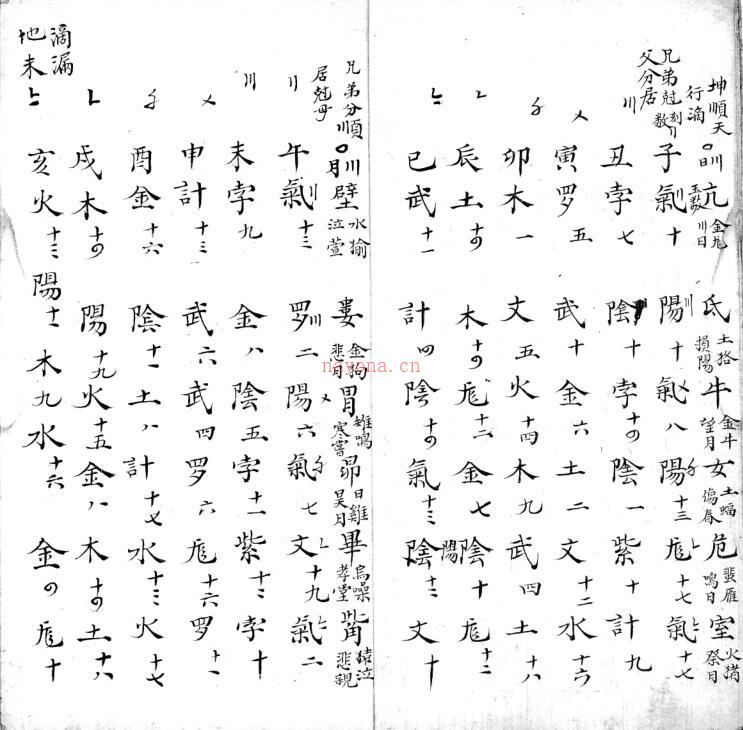 坤順天 行滴 亢 金尨 氐 土狢 損陽 牛 金牛 望月 女 土蝠 傷春 危 蜚雁 鳴日 室 火猪 祭日
兄弟尅刻 父分居 〢 子氣十 陽十 氣八 陽十三 尨十七 氣十七
〣 丑孛七 陰十 孛十〤 陰一 紫十 計九
〤 寅罗五 武十 金六 土二 文十二 水十六
〥 卯木一 文五 火十四 木九 武四 土十八
〦 辰土十〤 木十〤 尨十二 金七 陽陰十 尨十二
〧 巳武十一 計四 陰十〤 氣十三 陰十三 文十
兄弟分順 居尅母 壁 水㺄 泣萱 婁 金狗 悲月 胃 雉鳴 寒嘗 昴 日雞 昊月 畢 烏噪 孝堂 觜 猿泣 悲親
〢 午氣十三 罗二 陽六 氣七 文十九 氣二
〣 未孛九 金八 陰五 孛十一 紫十三 孛十
〤 申計十三 武六 武四 罗六 尨十六 罗十一
〥 酉金十六 陰十一 土八 計十七 水十三 火十七
〦 戌木十〤 陽十九 火十五 金八 木十〤 土十八
〧 亥火十三 陽十一 木九 水十六 金〤 尨十
滴漏
地未
nayona.cn